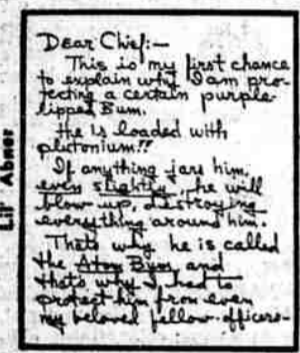 Lil' Abner
Dear Chief:—
This is my first chance
to explain why I am pro-
tecting a certain purple-
lipped Bum.
He is loaded with
plutonium!!
If anything jars him,
even slightly, he will
blow up, destroying
everything around him.
Thats why he is called
the Atom Bum, and
thats why I had to
protect him from even
my beloved fellow-officers—